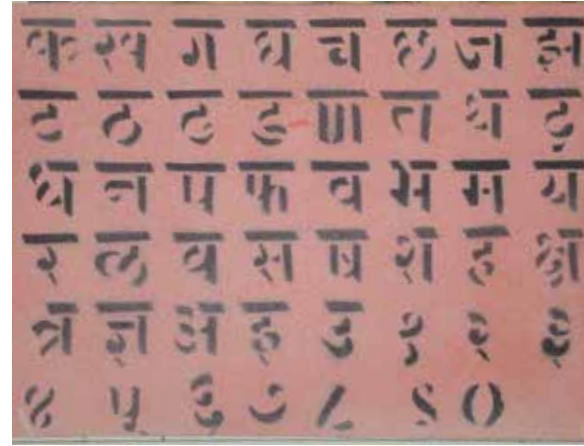 क ख ग घ च छ ज झ
ट ठ ढ ड ण त थ द
ध न प फ ब भ म य
र ळ व स ष श ह क्ष
त्र ज्ञ अ इ उ १ २ ३
४ ५ ६ ७ ८ ९ ०